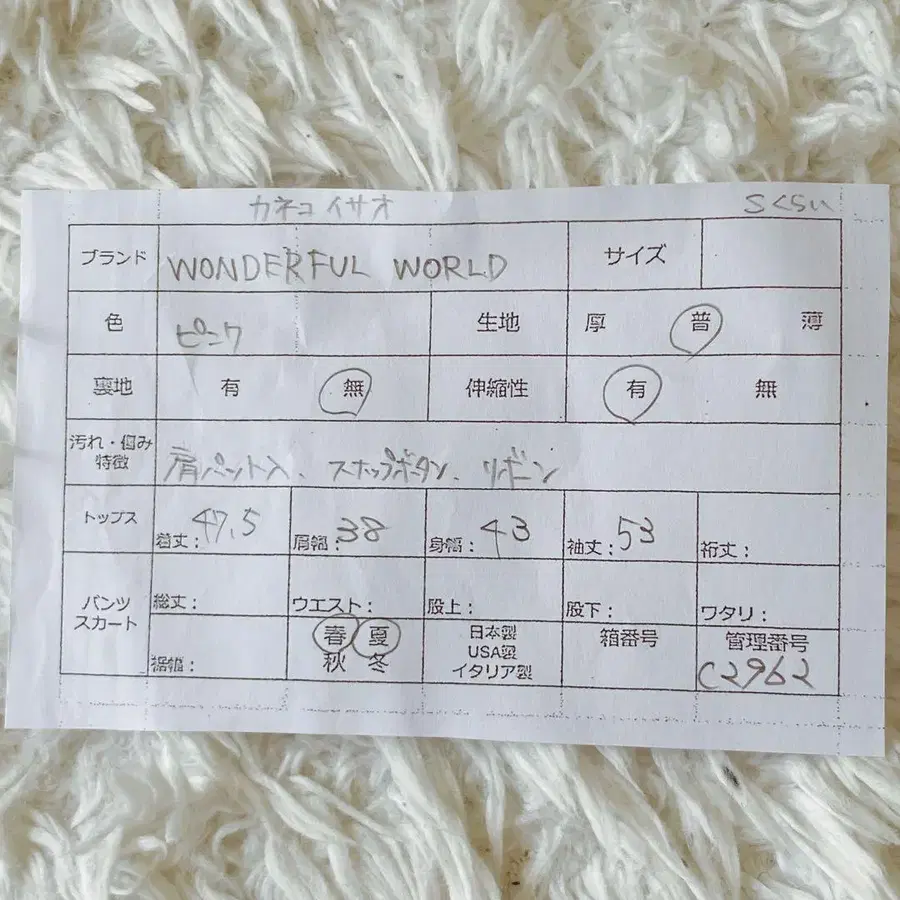 カネコイサオ Sくらい
ブランド WONDERFUL WORLD サイズ
色 ピンク 生地 厚 普 薄
裏地 有 無 伸縮性 有 無
汚れ・傷み
特徴 肩パット入、スナップボタン、リボーン
トップス 着丈：47.5 肩幅：38 身幅：43 袖丈：53 裄丈：
パンツ
スカート 総丈： ウエスト： 股上： 股下： ワタリ：
裾幅： 春 夏
秋 冬 日本製
USA製
イタリア製 箱番号 管理番号
C2962